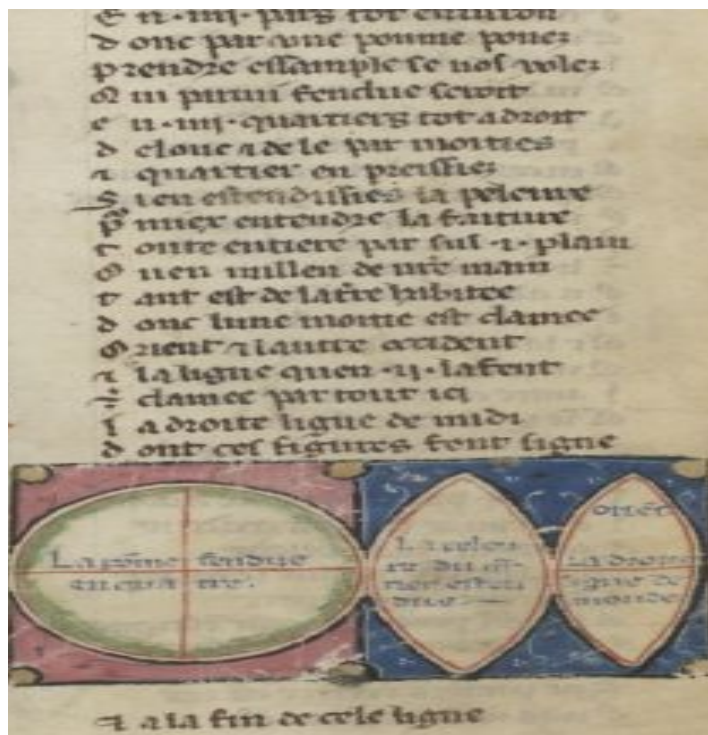 E n .iiii. pars tot environ
d onc par une poume pouez
p rendre essample se uos uolez
Q ui par mi fendue seroit
e n .iiii. quartiers tot adroit
d e lune & de le par moities
& quartier en preissiez
S i en estendissies la peleure
p̉ miex entendre la faiture
t oute entiere par sus .i. plain
O u en millieu de ure main
t ant est de latre habitee
d onc lune moitie est clamee
O rient & lautre occident
& la ligne quen .ii. la fent
clamee par tout ici
l a droite ligne de midi
d ont ces figures font signe
La pōme fendue
en quatre.
La peleu
re du
estendue
orient
La droite
ligne de
monde
& a la fin de cele ligne